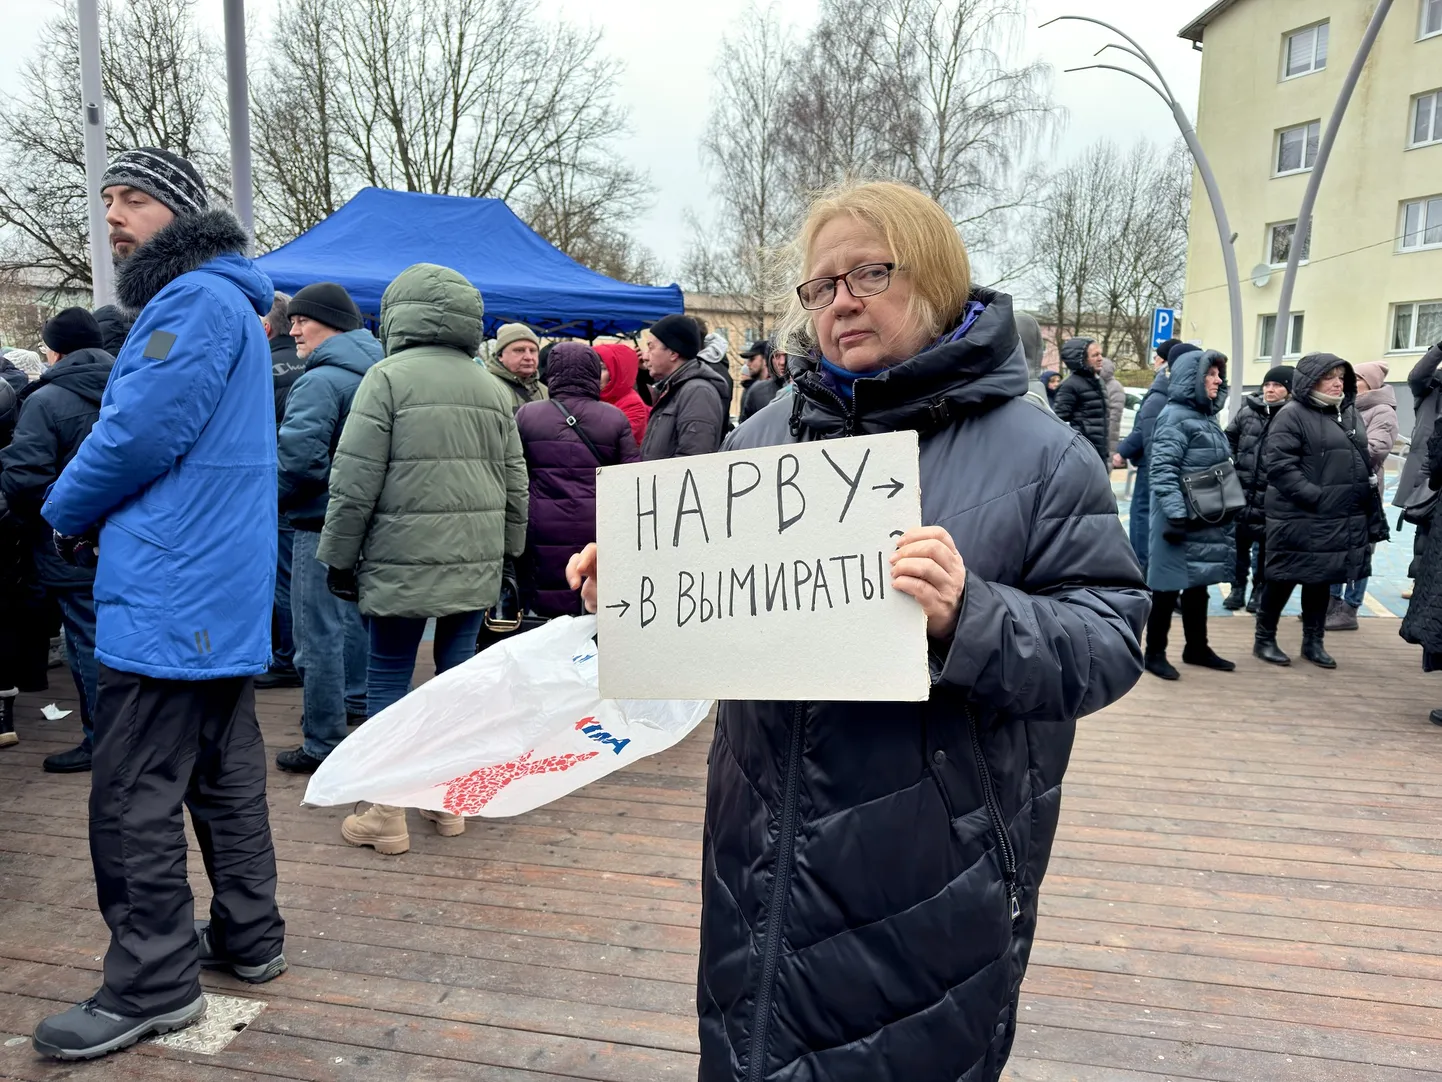 НАРВУ →
→ В ВЫМИРАТЫ
P